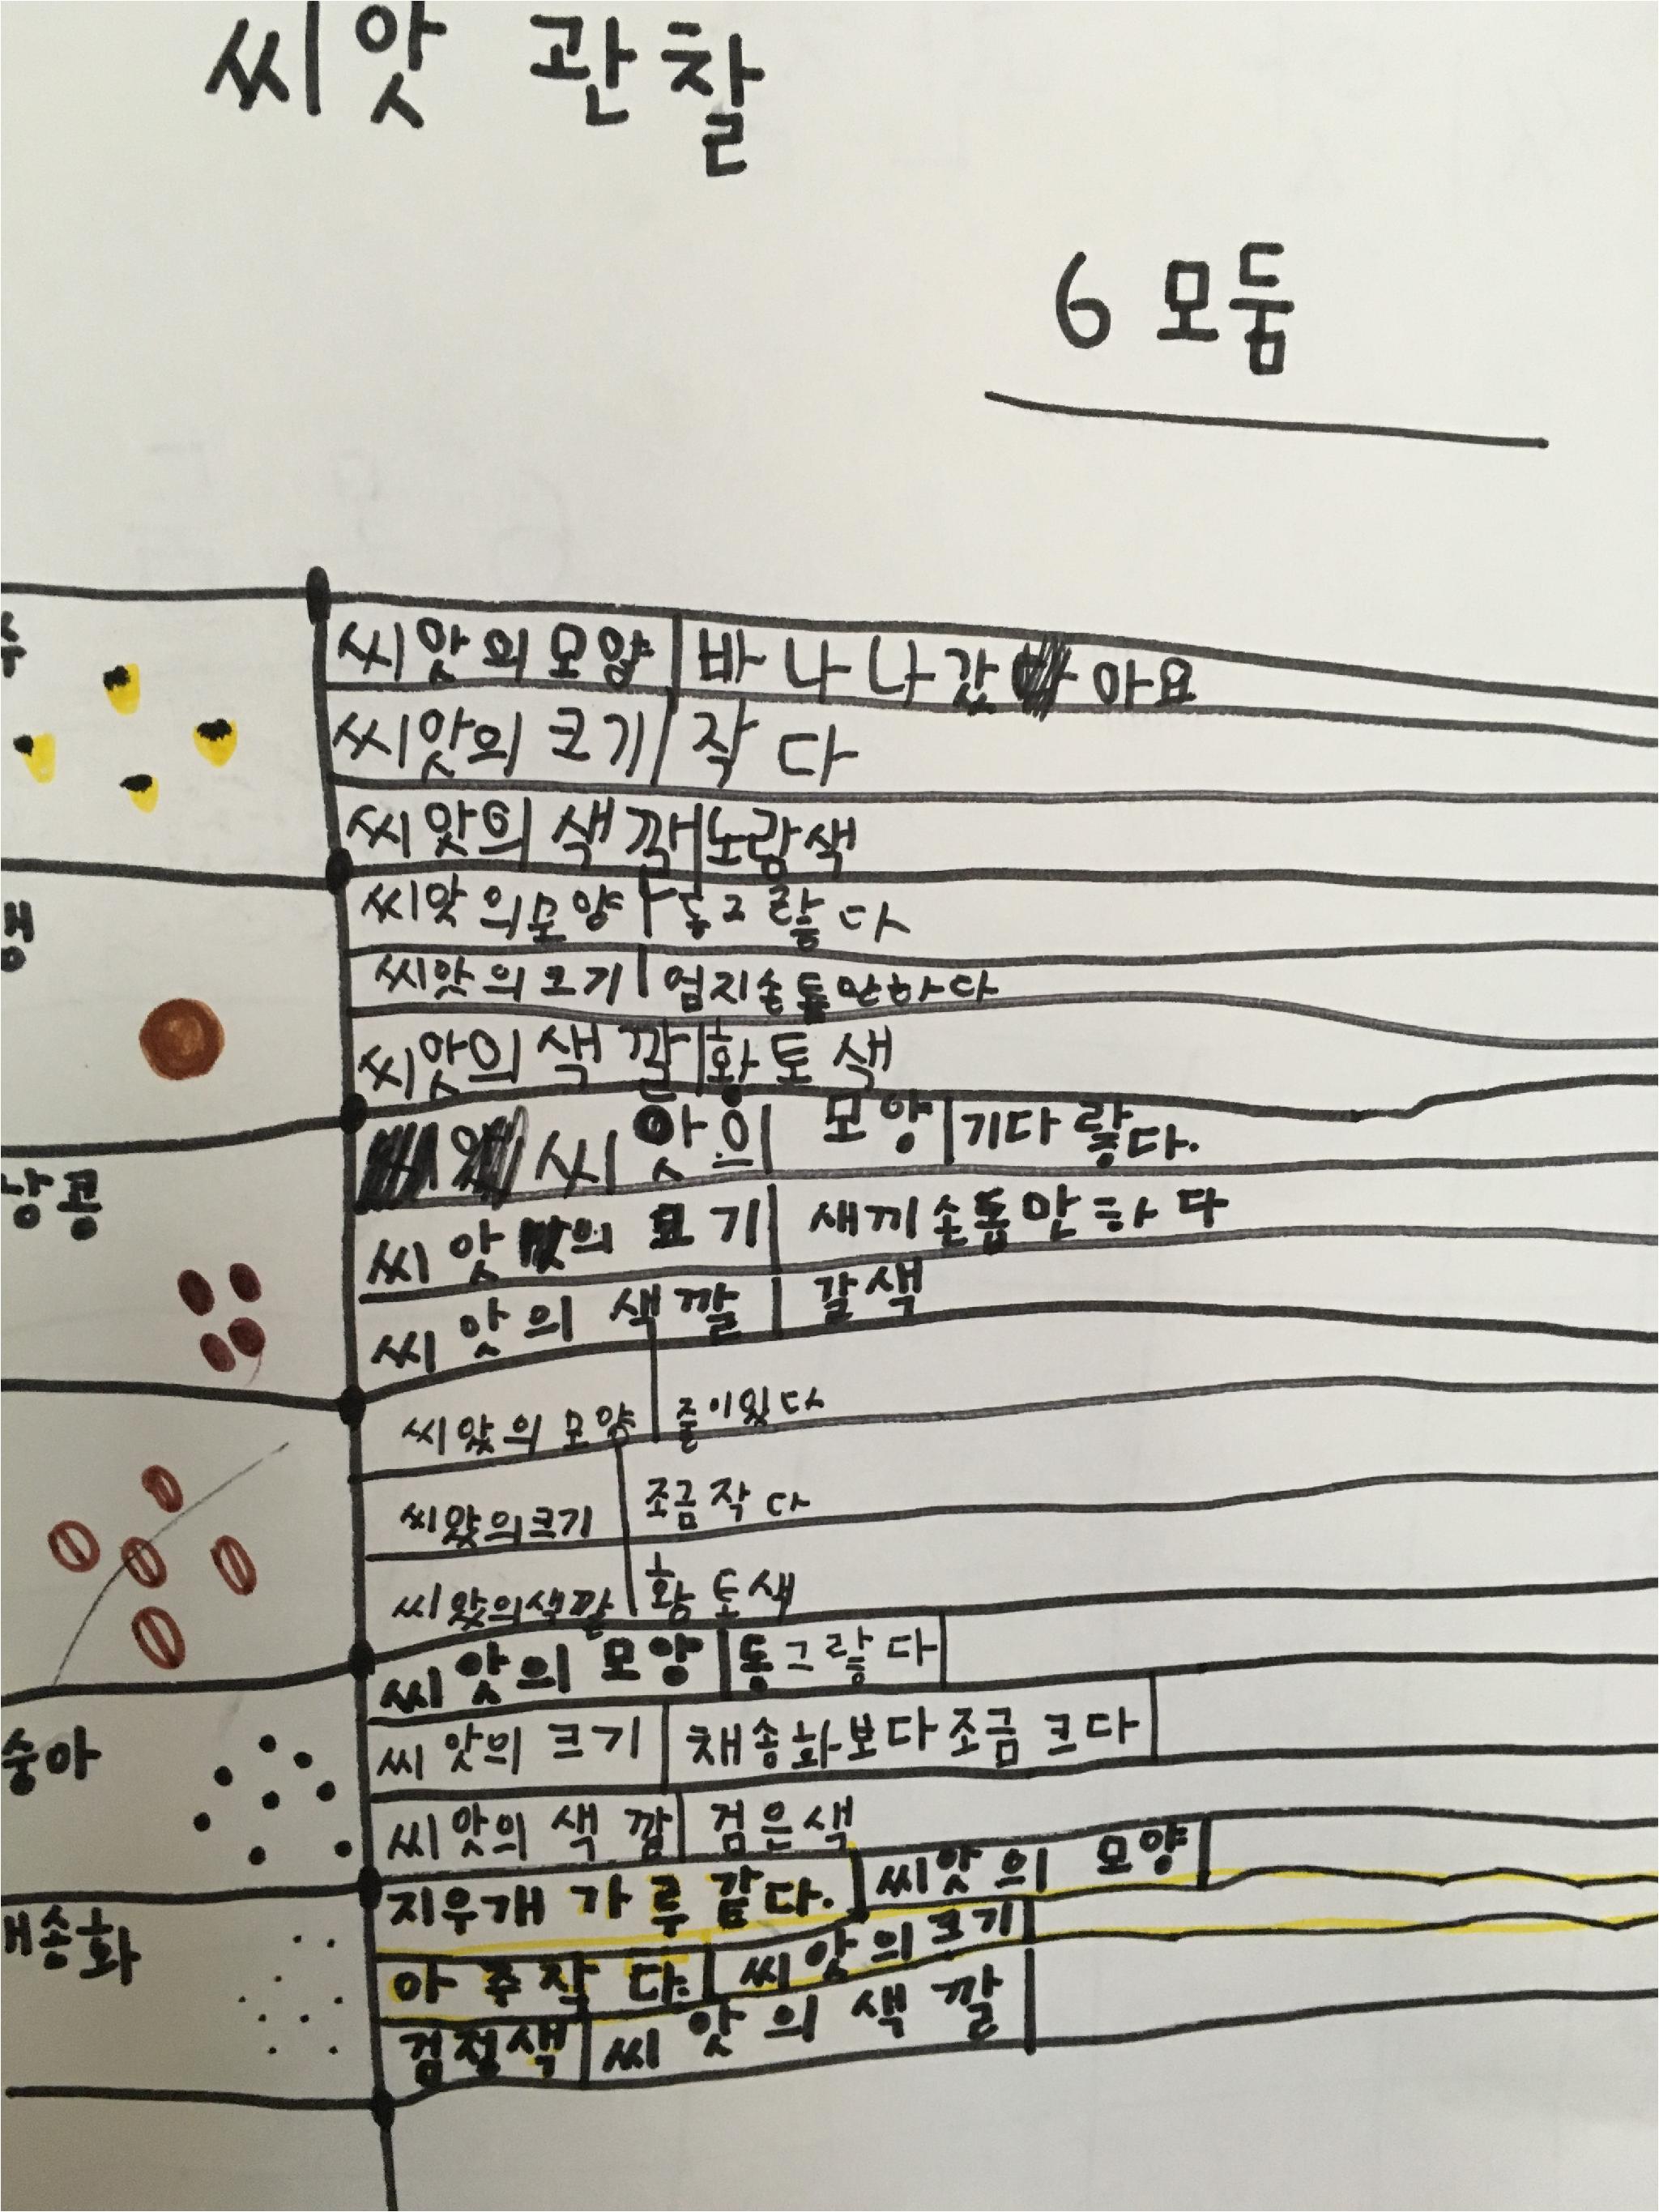 씨앗 관찰
6 모둠
수
씨앗의모양 바나나같아요
씨앗의 크기 작다
씨앗의 색깔 노랑색
씨앗의모양 동그랗다
씨앗의크기 엄지손톱만하다
씨앗의 색깔 황토색
씨앗의 모양 기다랗다.
강콩
씨앗의 크기 새끼손톱만하다
씨앗의 색깔 갈색
씨앗의 모양 줄이있다
씨앗의크기 조금작다
씨앗의색깔 황토색
씨앗의 모양 동그랗다
숭아
씨앗의 크기 채송화보다조금 크다
씨앗의 색깔 검은색
지우개 가루 같다. 씨앗의 모양
채송화
아주작다. 씨앗의크기
검정색 씨앗의 색깔